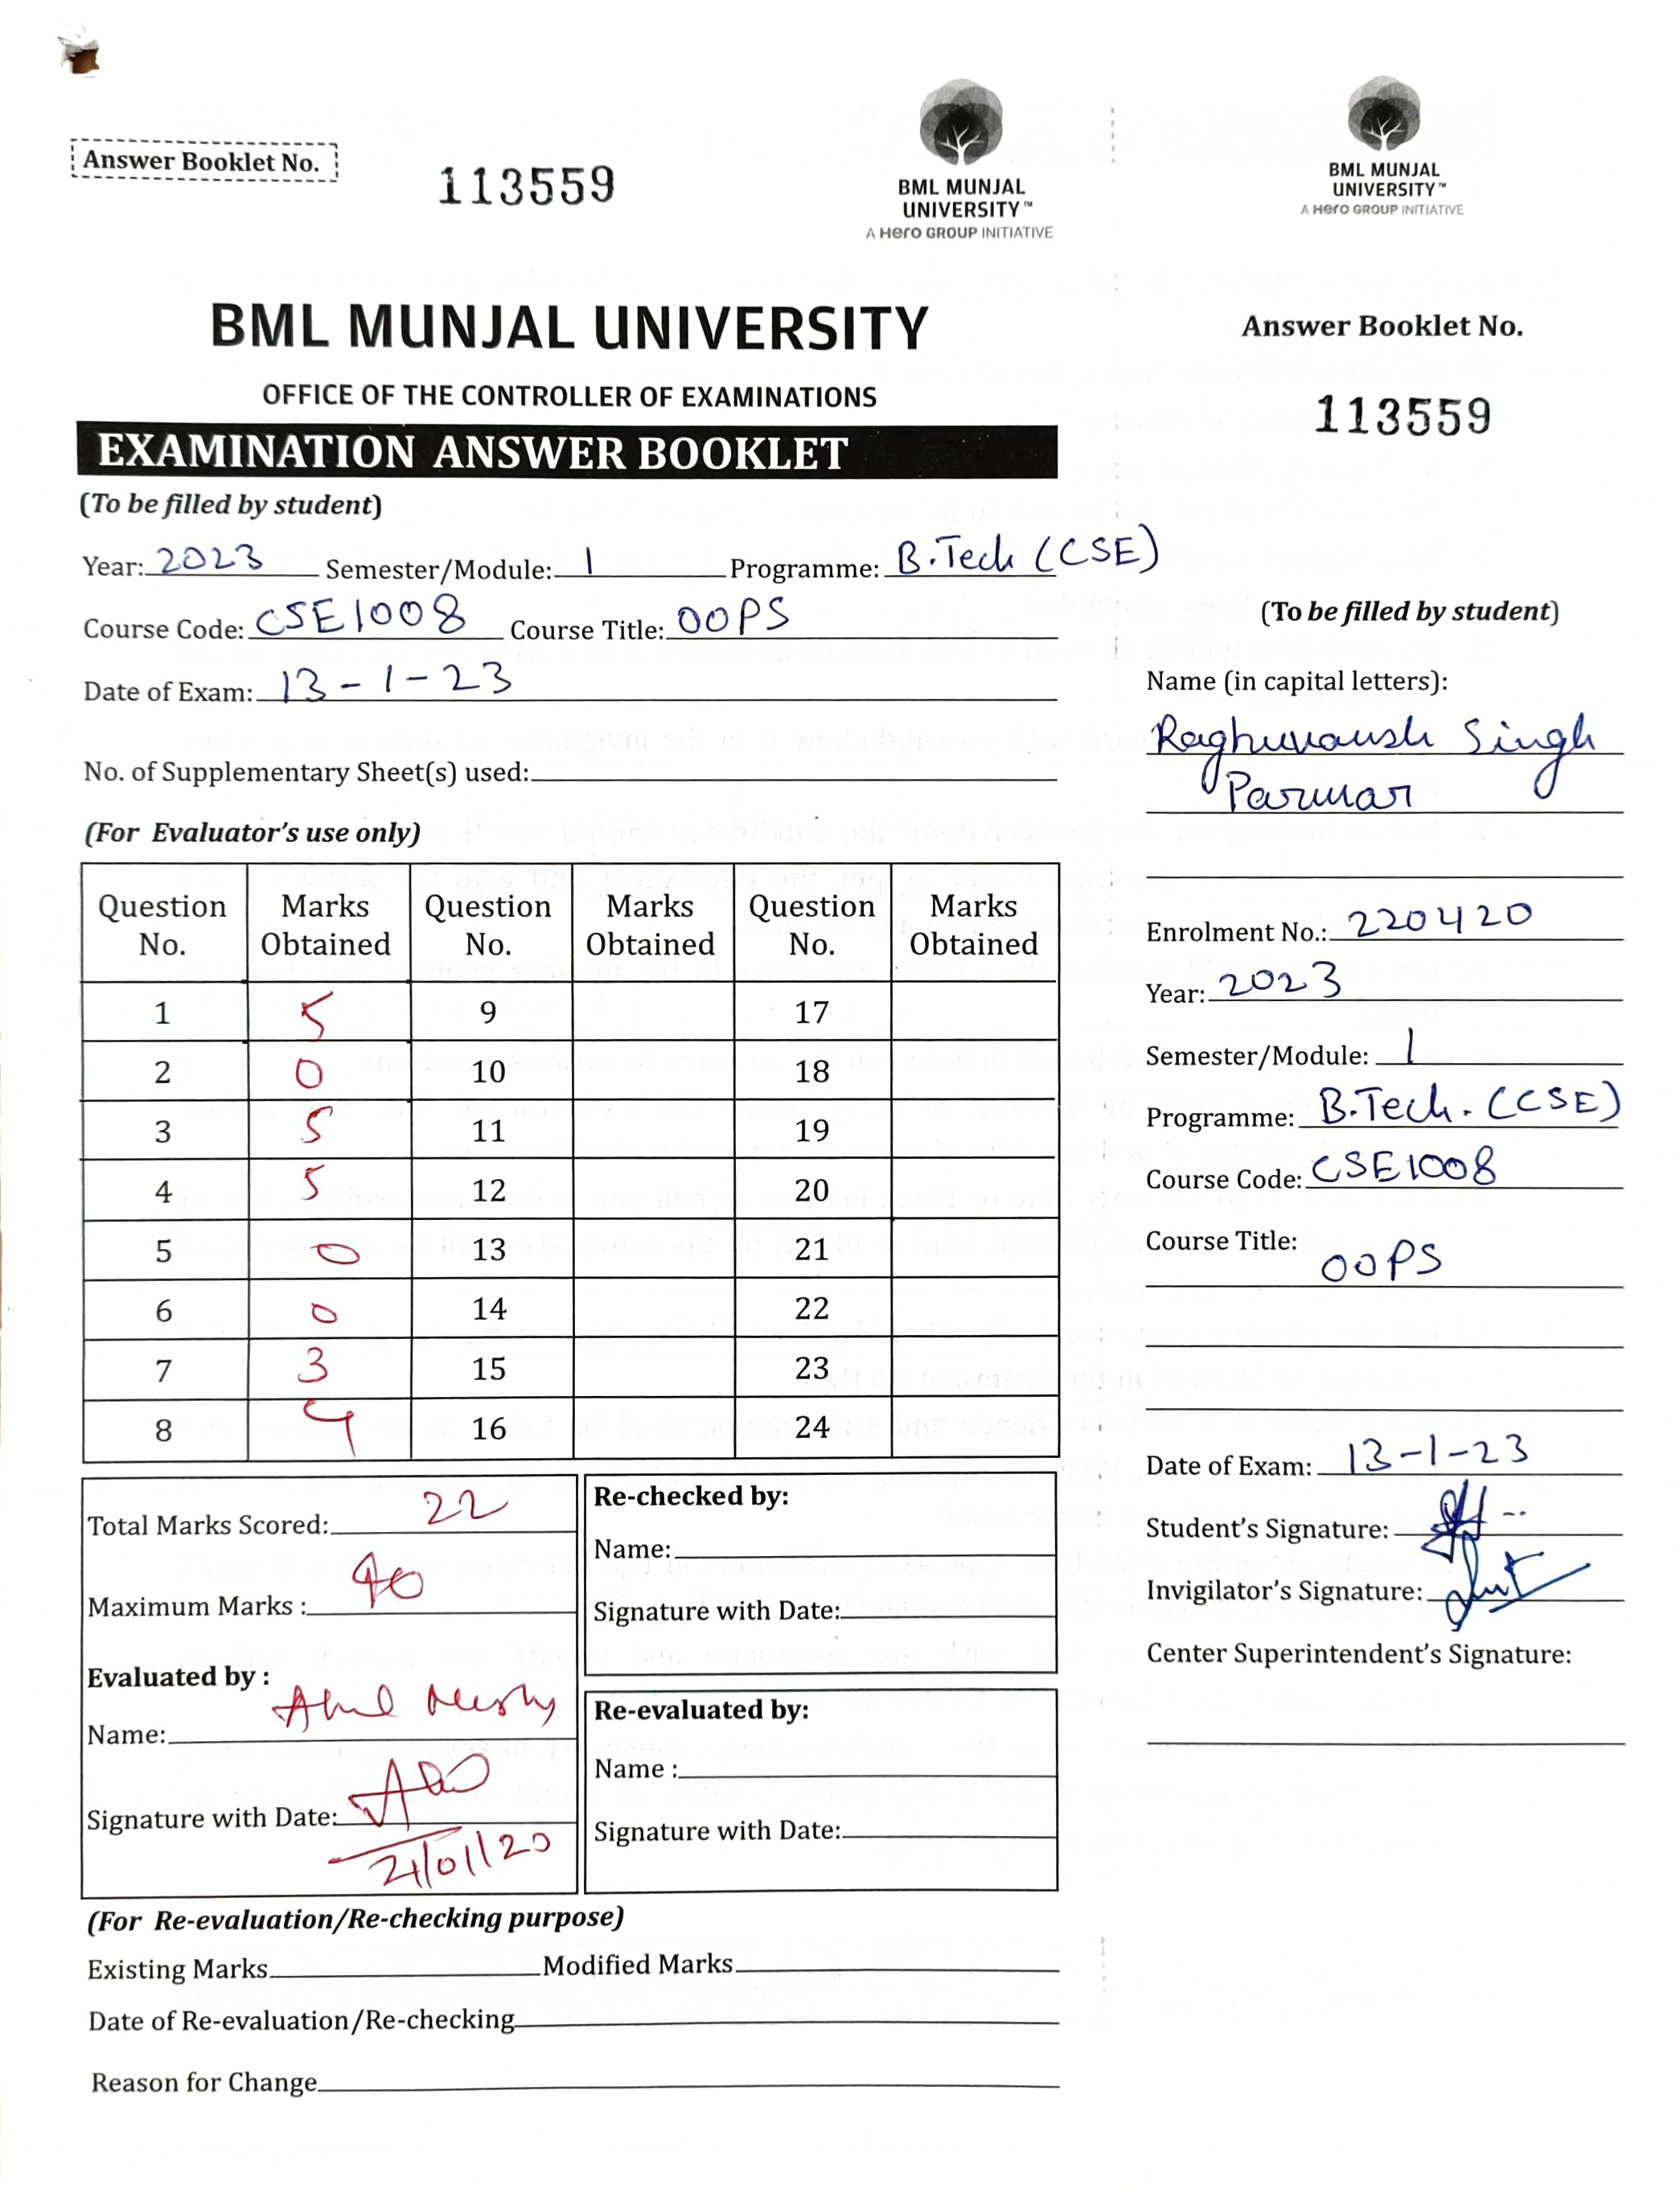 Answer Booklet No.
113559
BML MUNJAL
UNIVERSITY™
A Hero GROUP INITIATIVE
BML MUNJAL UNIVERSITY
OFFICE OF THE CONTROLLER OF EXAMINATIONS
EXAMINATION ANSWER BOOKLET
(To be filled by student)
Year: 2023 Semester/Module: 1 Programme: B.Tech (CSE)
Course Code: CSE1008 Course Title: OOPS
Date of Exam: 13-1-23
No. of Supplementary Sheet(s) used:
(For Evaluator's use only)
Question No. Marks Obtained Question No. Marks Obtained Question No. Marks Obtained
1 5 9 17
2 0 10 18
3 5 11 19
4 5 12 20
5 0 13 21
6 0 14 22
7 3 15 23
8 4 16 24
Total Marks Scored: 22
Maximum Marks : 40
Evaluated by :
Name:
Signature with Date: 21/01/20
Re-checked by:
Name:
Signature with Date:
Re-evaluated by:
Name :
Signature with Date:
(For Re-evaluation/Re-checking purpose)
Existing Marks Modified Marks
Date of Re-evaluation/Re-checking
Reason for Change
BML MUNJAL
UNIVERSITY™
A Hero GROUP INITIATIVE
Answer Booklet No.
113559
(To be filled by student)
Name (in capital letters):
Raghuvansh Singh
Parmar
Enrolment No.: 220420
Year: 2023
Semester/Module: 1
Programme: B.Tech. (CSE)
Course Code: CSE1008
Course Title:
OOPS
Date of Exam: 13-1-23
Student's Signature:
Invigilator's Signature:
Center Superintendent's Signature: